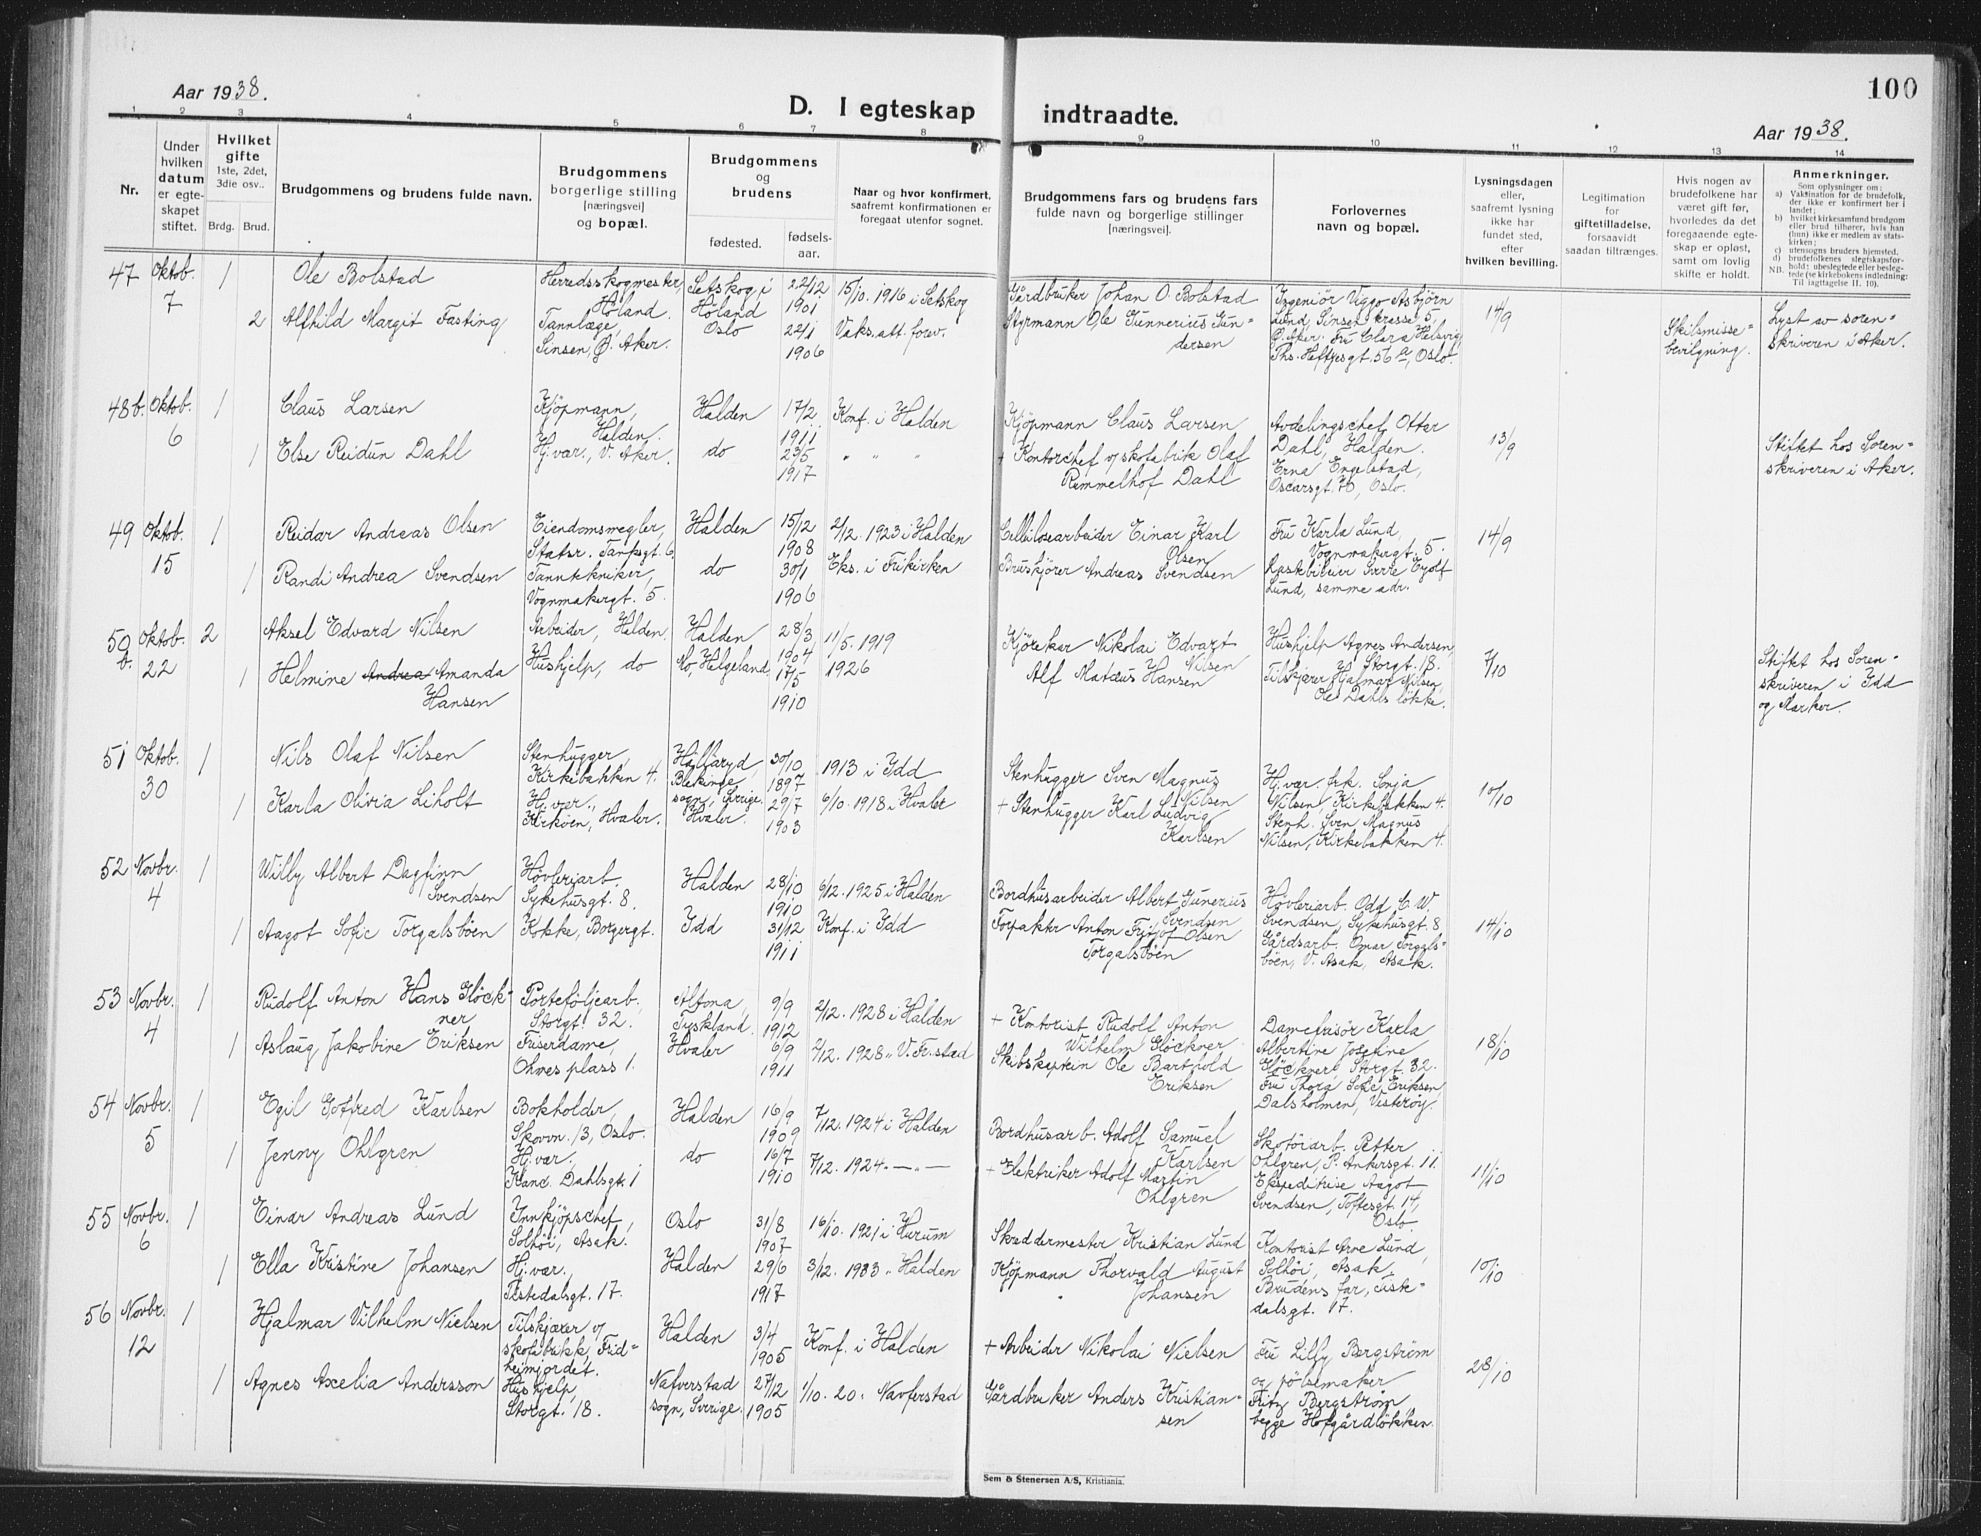 Aar 1938.
D. I egteskap indtraadte.
100
Aar 1938.
1 2 3 4 5 6 7 8 9 10 11 12 13 14
Nr.
Under hvilken datum er egteskapet stiftet.
Hvilket gifte 1ste, 2det, 3die osv..
Brdg. Brud.
Brudgommens og brudens fulde navn.
Brudgommens borgerlige stilling [næringsvei] og bopæl.
Brudgommens og brudens
fødested.
fødselsaar.
Naar og hvor konfirmert, saafremt konfirmationen er foregaat utenfor sognet.
Brudgommens fars og brudens fars fulde navn og borgerlige stillinger [næringsvei].
Forlovernes navn og bopæl.
Lysningsdagen eller, saafremt lysning ikke har fundet sted, efter hvilken bevilling.
Legitimation for giftetilladelse. forsaavidt saadan tiltrænges.
Hvis nogen av brudefolkene har været gift før, hvorledes da det foregaaende egteskap er opløst, samt om lovlig skifte er holdt.
Anmerkninger.
Som oplysninger om:
a) Vaksination for de brudefolk, der ikke er konfirmert her i landet;
b) hvilket kirkesamfund brudgom eller brud tilhører, hvis han (hun) ikke er medlem av statskirken;
c) utensogns bruders hjemsted.
d) brudefolkenes slegtskapsforhold; ubeslegtede eller beslegtede (se kirkebokens indledning: Til iagttagelse II. 10).
NB.
47 Oktob. 7
1 Ole Bolstad
Herredsskogmester, Høland.
Setskog i Høland
22/12 1901
15/10. 1916 i Setskog
Gårdbruker Johan O. Bolstad
2 Alfhild Margit Fasting
Tannlæge, Sinsen, Ø. Aker.
Oslo
22/1 1906
Vaks. att. forev.
Styrmann Ole Gunnerius Gundersen
Ingeniør Viggo Asbjørn Lund, Sinsen krasse 5, Ø. Aker. Fru Clara Helsvig, Ths. Heftyesgt. 56 a, Oslo.
14/9
Skilsmissebevilgning.
Lyst av sorenskriveren i Aker.
48 b. Oktob. 6
1 Claus Larsen
Kjøpmann, Halden.
Halden
17/2 1911
Konf. i Halden
Kjøpmann Claus Larsen
1 Else Reidun Dahl
Hj. var., V. Aker.
do
23/5 1917
" " "
+ Kontorchef v/ skofabrik Olaf Remmelhof Dahl
Avdelingschef Otter Dahl, Halden. Erna Engelstad, Oscarsgt. 70, Oslo.
13/9
Stiftet hos Sorenskriveren i Aker.
49 Oktob. 15
1 Reidar Andreas Olsen
Eiendomsmegler, Statsr. Tanksgt. 6
Halden
15/12 1908
2/12. 1923 i Halden
Cellulosearbeider Einar Karl Olsen
1 Randi Andrea Svendsen
Tanntekniker, Vognmakergt. 5.
do
30/1 1906
Eks. i Frikirken
Bruskjører Andreas Svendsen
Fru Karla Lund, Vognmakergt. 5. Lastebileier Sverre Eyolf Lund, samme adr.
14/9
50 b. Oktob. 22
2 Aksel Edvard Nilsen
Arbeider, Halden.
Halden
28/3 1904
11/5. 1919
Kjørekar Nikolai Edvart Nilsen
1 Helmine Andrea Amanda Hansen
Hushjelp, do
Mo, Helgeland
17/5 1910
1926
Alf Matæus Hansen
Hushjelp Agnes Andersen, Storgt. 18. Tilskjærer Hjalmar Nilsen, Ole Dahls løkke.
7/10
Stiftet hos Sorenskriveren i Idd og Marker.
51 Oktob. 30
1 Nils Olaf Nilsen
Stenhugger, Kirkebakken 4.
Hallaryd, Blekinge sogn, Sverige.
30/10 1897
1913 i Idd
Stenhugger Sven Magnus Nilsen
1 Karla Olivia Liholt
Hj. var., Kirkøen, Hvaler.
Hvaler.
29/7 1903
6/10. 1918 i Hvaler
+ Stenhugger Karl Ludvig Karlsen
Hj. var. frk. Sonja Nilsen, Kirkebakken 4. Stenh. Sven Magnus Nilsen, Kirkebakken 4.
10/10
52 Novbr. 4
1 Willy Albert Dagfinn Svendsen
Høvleriarb. Sykehusgt. 8.
Halden
28/10 1910
6/12. 1925 i Halden
Bordhusarbeider Albert Gunerius Svendsen
1 Aagot Sofie Torgalsbøen
Kokke, Borgergt.
Idd
31/12 1911
Konf. i Idd
Forpakter Anton Fritjof Olsen Torgalsbøen
Høvleriarb. Odd C. W Svendsen, Sykehusgt. 8 Gårdsarb. Omar Torgalsbøen, V. Asak, Asak.
14/10
53 Novbr. 4
1 Rudolf Anton Hans Glöckner
Porteføljearb., Storgt. 32.
Altona, Tyskland.
9/9 1912
2/12. 1928 i Halden
+ Kontorist Rudolf Anton Wilhelm Glöckner
1 Aslaug Jakobine Eriksen
Friserdame, Olives plass 1.
Hvaler
6/9 1911
2/12. 1928 " V. Fr.stad
Skibskaptein Ole Barthold Eriksen
Damefrisør Karla Albertine Josefine Glöckner, Storgt. 32. Fru Thora Sofie Eriksen, Dalsholmen, Vesterøy.
18/10
54 Novbr. 5
1 Egil Gotfred Karlsen
Bokholder, Skovvn. 13, Oslo.
Halden
16/9 1909
7/12. 1924 i Halden
Bordhusarb. Adolf Samuel Karlsen
1 Jenny Ohlgren
Hj. var. Kanc. Dahlsgt. 1
do
16/7 1910
7/12. 1924 —„—
+ Elektriker Adolf Martin Ohlgren
Skotøiarb. Petter Ohlgren, P. Ankersgt. 11. Ekspeditrise Aagot Svendsen, Toftesgt. 14, Oslo.
11/10
55 Novbr. 6
1 Einar Andreas Lund
Innkjøpschef, Solhøi, Asak.
Oslo
31/8 1907
16/10. 1921 i Hurum
Skreddermester Kristian Lund
1 Ella Kristine Johansen
Hj. var., Tistedalsgt. 17.
Halden
29/6 1917
3/12. 1933 " Halden
Kjøpmann Thorvald August Johansen
Kontorist Arve Lund, Solhøi, Asak. Brudens far, Tistedalsgt. 17.
10/10
56 Novbr. 12
1 Hjalmar Vilhelm Nielsen
Tilskjærer v/ skofabrikk, Fridheimjordet.
Halden
3/4 1905
Konf. i Halden
+ Arbeider Nikolai Nielsen
1 Agnes Axelia Andersson
Hushjelp, Storgt. 18.
Nafverstad sogn, Sverige.
27/12 1905
1/10. 20. Navferstad
Gårdbruker Anders Kristiansen
Fru Lilly Bergstrøm og pølsemaker Fritz Bergstrøm begge Hofgårdløkken.
28/10
Sem & Stenersen A/S, Kristiania.